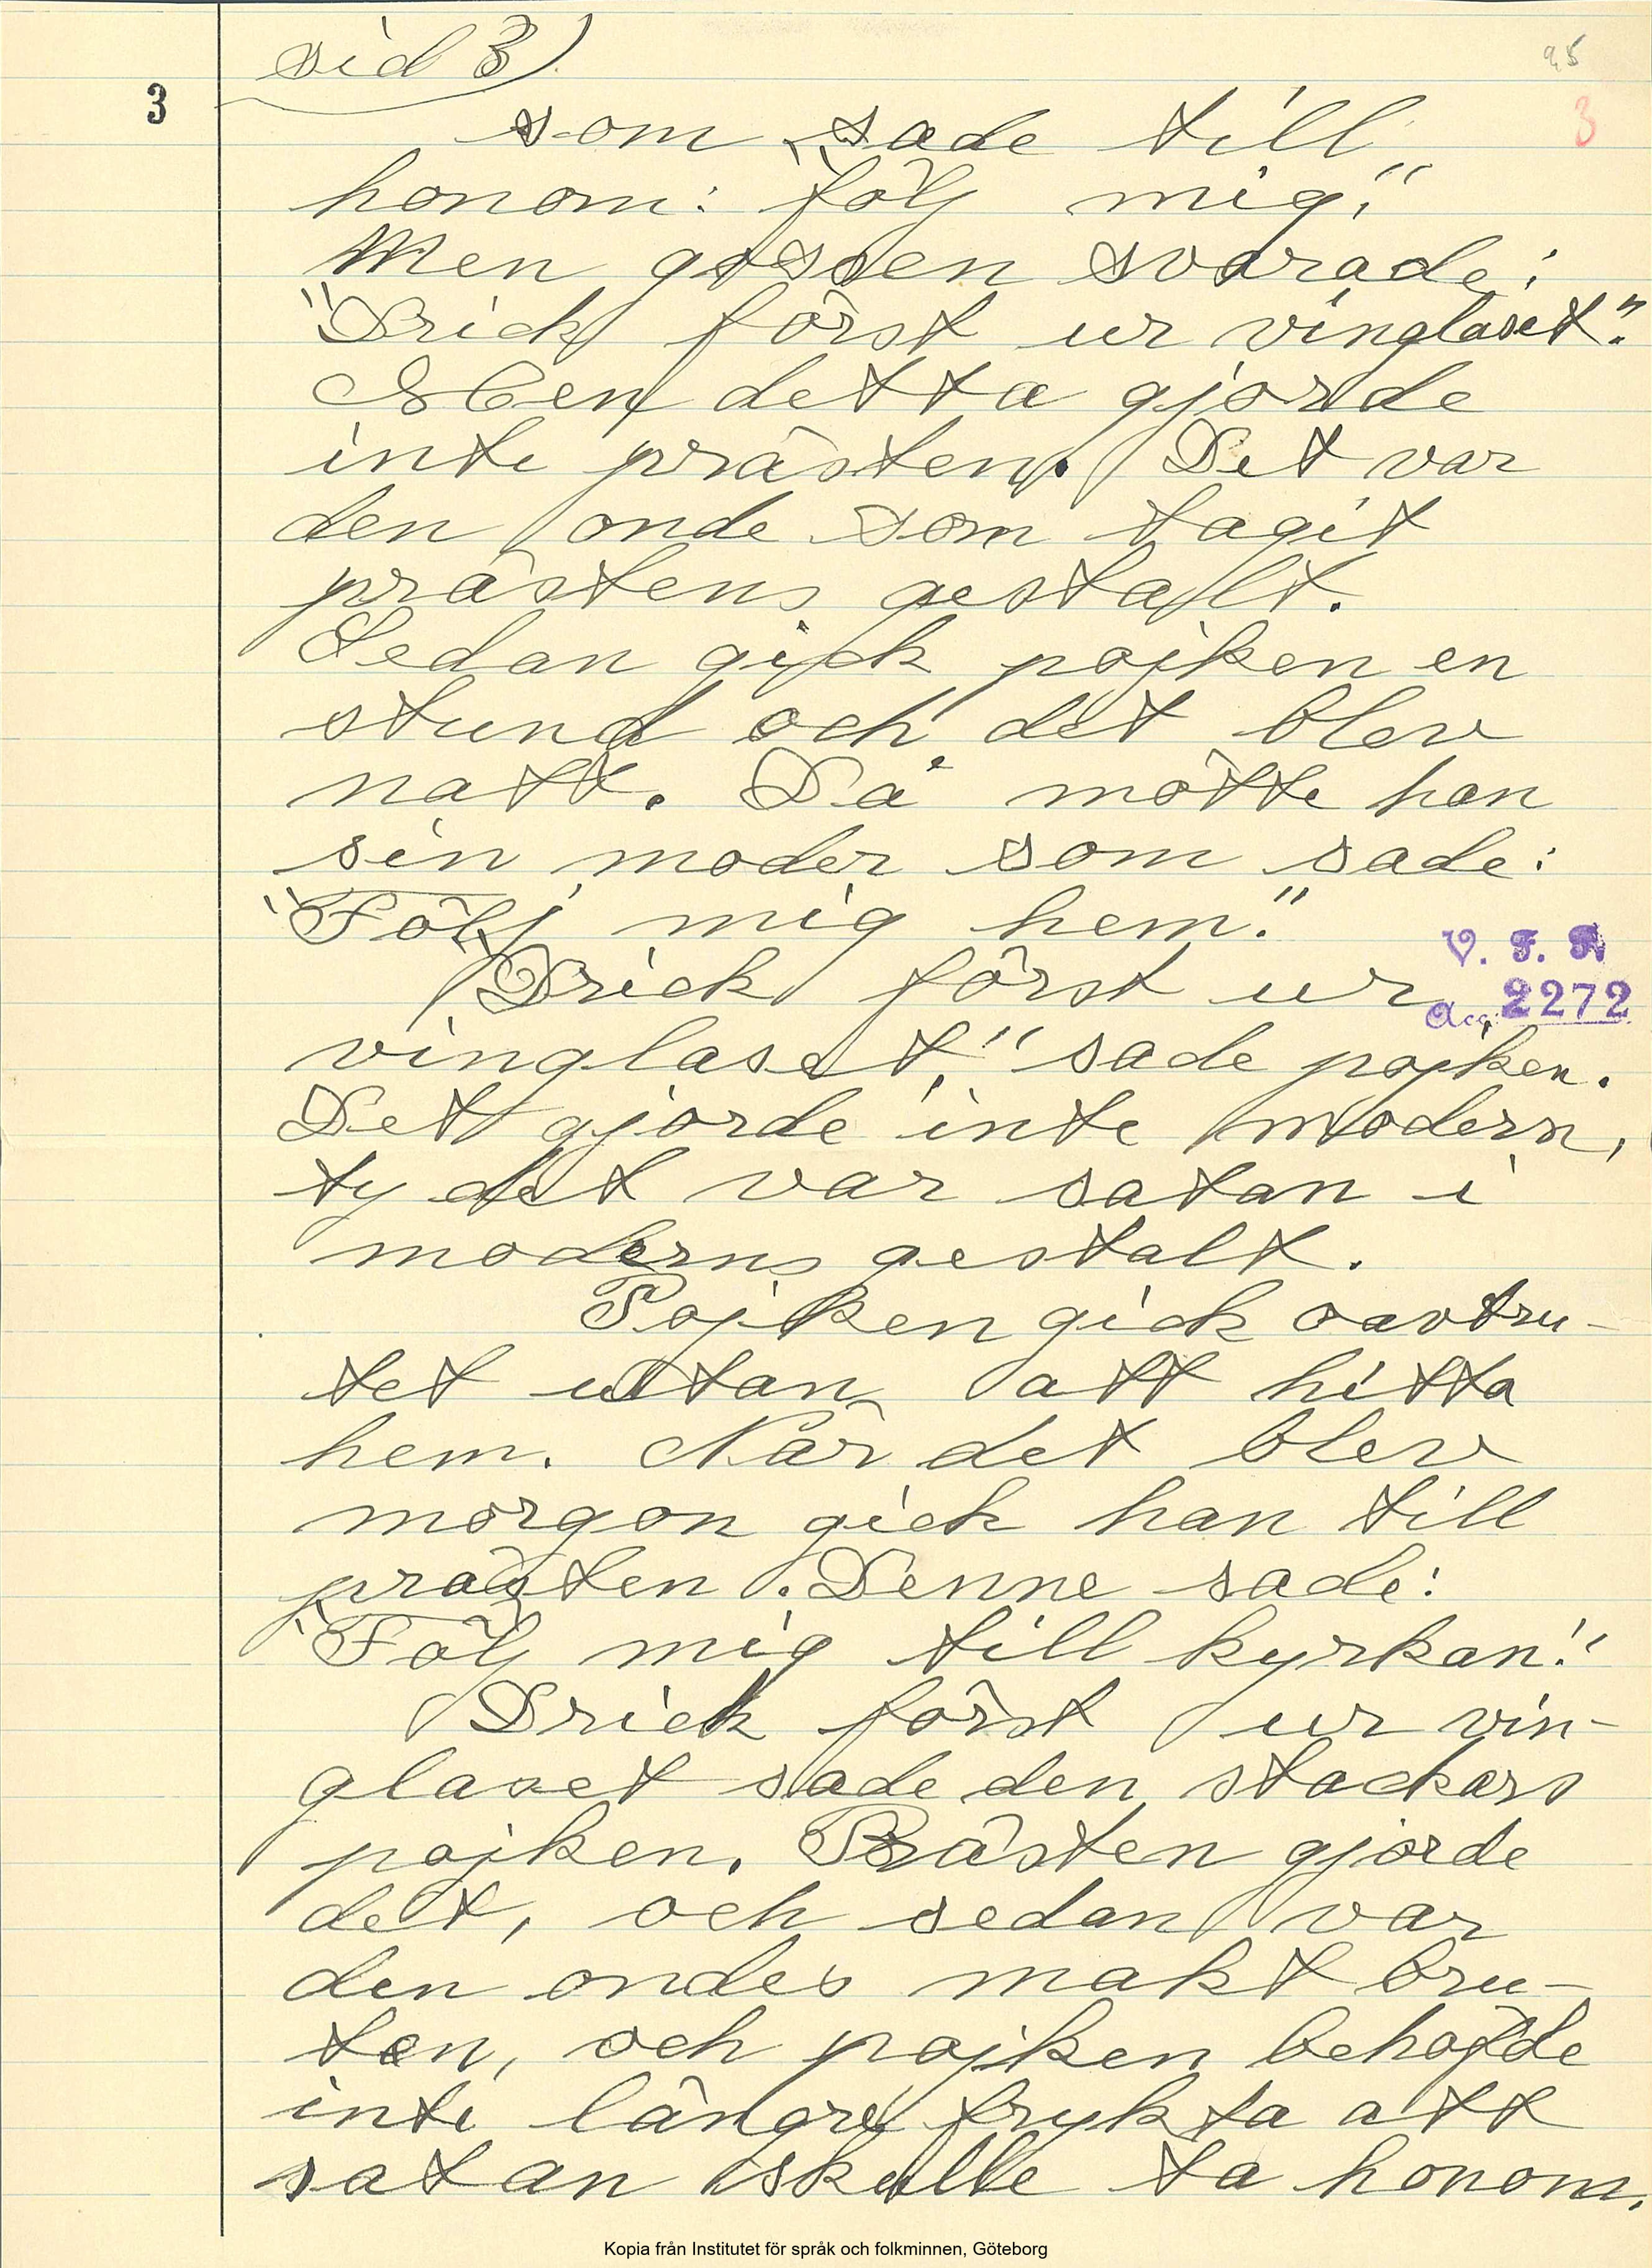 sid 3)
95
3
3
som sade till
honom: "följ mig."
Men gossen svarade:
"Drick först ur vinglaset".
Men detta gjorde
inte prästen. Det var
den onde som tagit
prästens gestalt.
Sedan gick pojken en
stund och det blev
natt. Då mötte han
sin moder som sade:
"Följ mig hem."
"Drick först ur
V. F. A
Acc. 2272
vinglaset," sade pojken.
Det gjorde inte modern,
ty det var satan i
moderns gestalt.
Pojken gick oavtru-
tet utan att hitta
hem. När det blev
morgon gick han till
prästen. Denne sade:
"Följ mig till kyrkan."
Drick först ur vin-
glaset sade den stackars
pojken. Prästen gjorde
det, och sedan var
den ondes makt bru-
ten, och pojken behöfde
inte längre frykta att
satan skulle ta honom.
Kopia från Institutet för språk och folkminnen, Göteborg